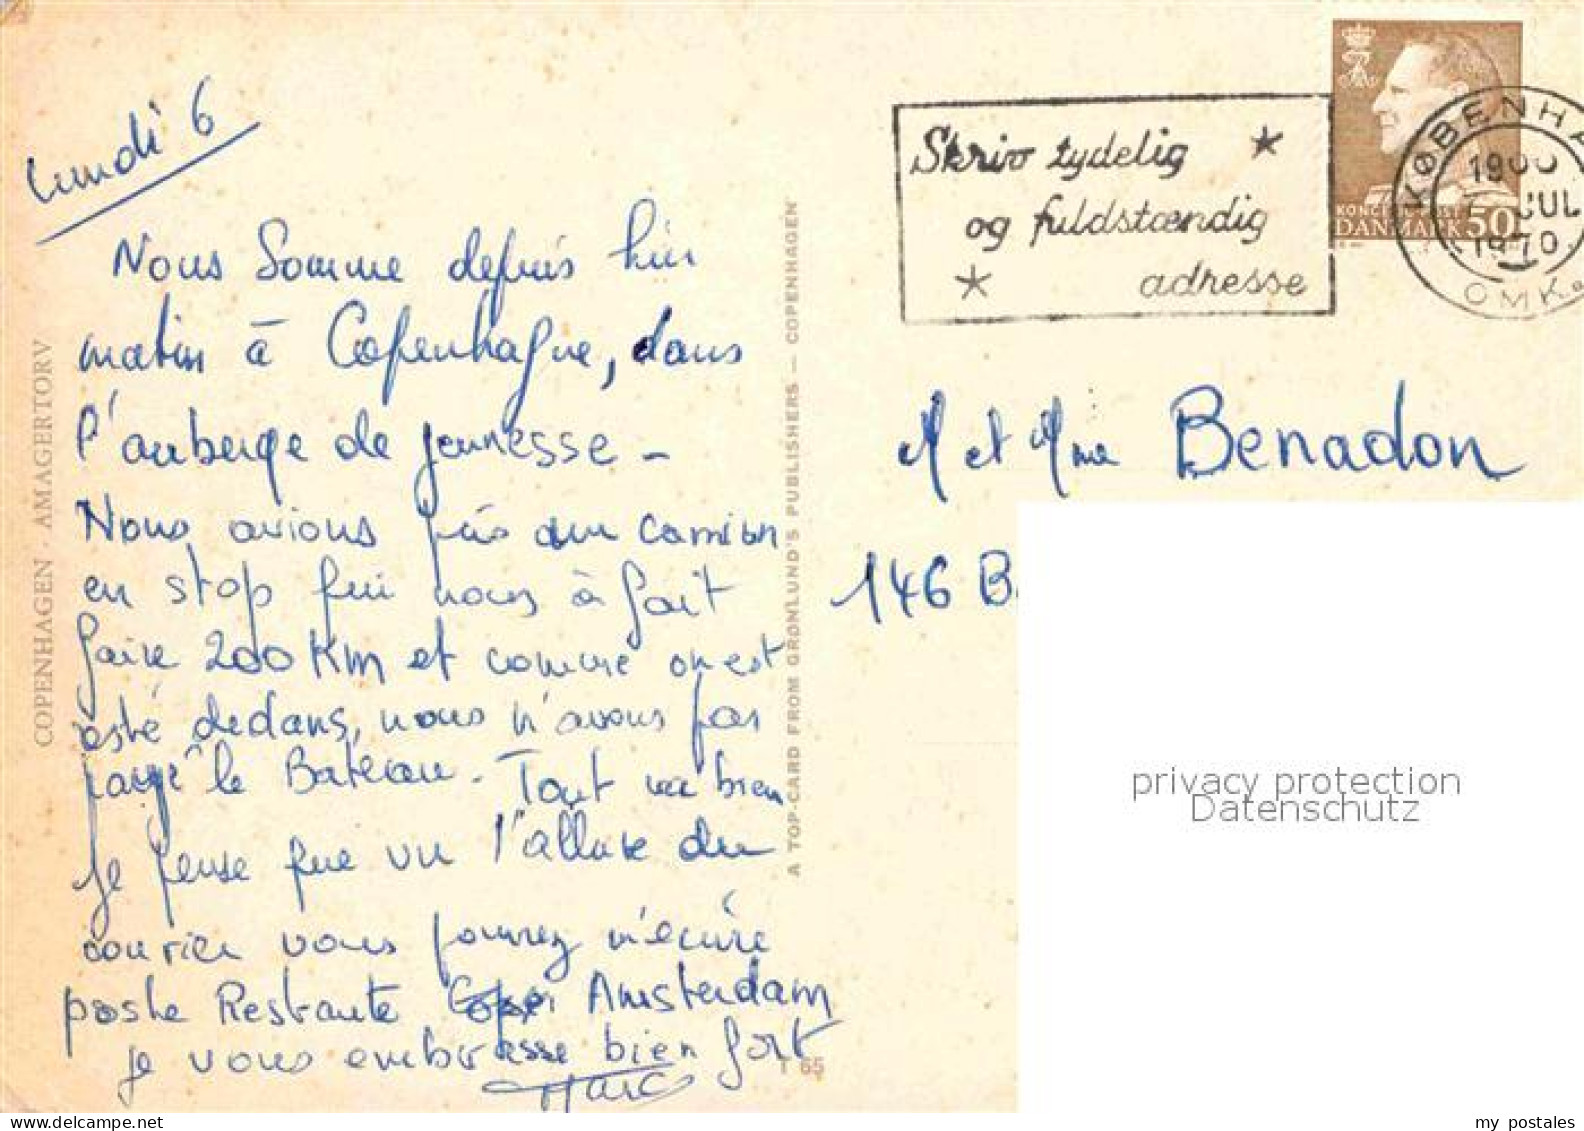 lundi 6
Nous Somme depuis hier
matin à Copenhague, dans
l'auberge de jeunesse -
Nous avions pris un camion
en stop qui nous à fait
faire 200 Km et comme on est
resté dedans, nous n'avons pas
payé le Bateau. Tout va bien
je pense que vu l'allure du
courrier vous pourrez m'écrire
poste Restante Amsterdam
je vous embrasse bien fort
Marc
COPENHAGEN - AMAGERTORV
A TOP-CARD FROM GRØNLUND'S PUBLISHERS — COPENHAGEN
T 65
Skriv tydelig
og fuldstændig
adresse
DANMARK 50
KØBENHA
JUL
1970
OMK.
M et Mme Benadon
146 B
privacy protection
Datenschutz
my postales